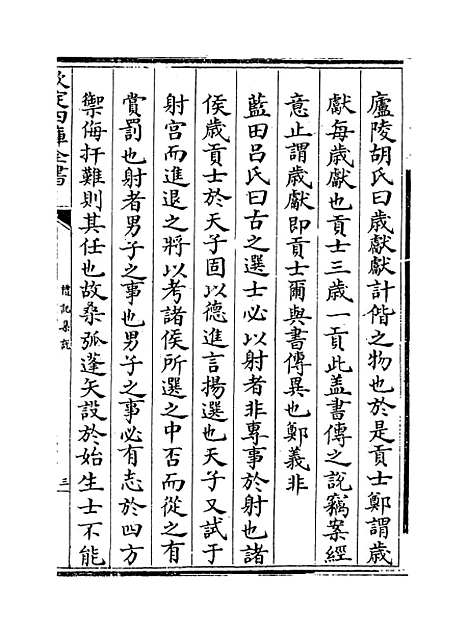 廬陵胡氏曰歲獻獻計偕之物也於是貢士鄭謂歲
獻每歲獻也貢士三歲一貢此盖書傳之説竊案經
意止謂歲獻即貢士爾與書傳異也鄭義非
藍田吕氏曰古之選士必以射者非專事於射也諸
侯歲貢士於天子固以德進言揚選也天子又試于
射宫而進退之將以考諸侯所選之中否而從之有
賞罰也射者男子之事也男子之事必有志於四方
禦侮扞難則其任也故桑弧蓬矢設於始生士不能
欽定四庫全書
禮記集説
三